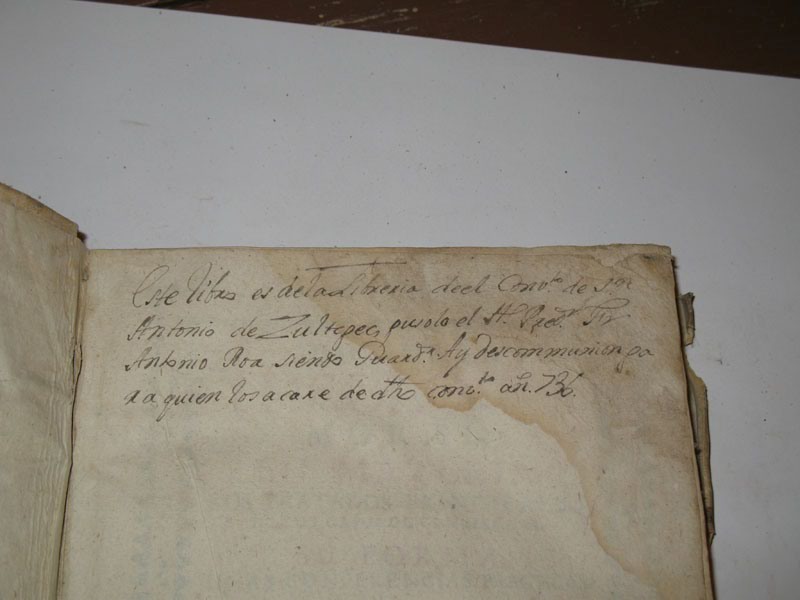 Este libro es de la Libreria de el Conv.to de S.n
Antonio de Zultepec, pusolo el H. Pred.r Fr
Antonio Roa siendo Guard.n Ay descommunion pa
ra quien lo sacare de dho conv.to añ. 736.